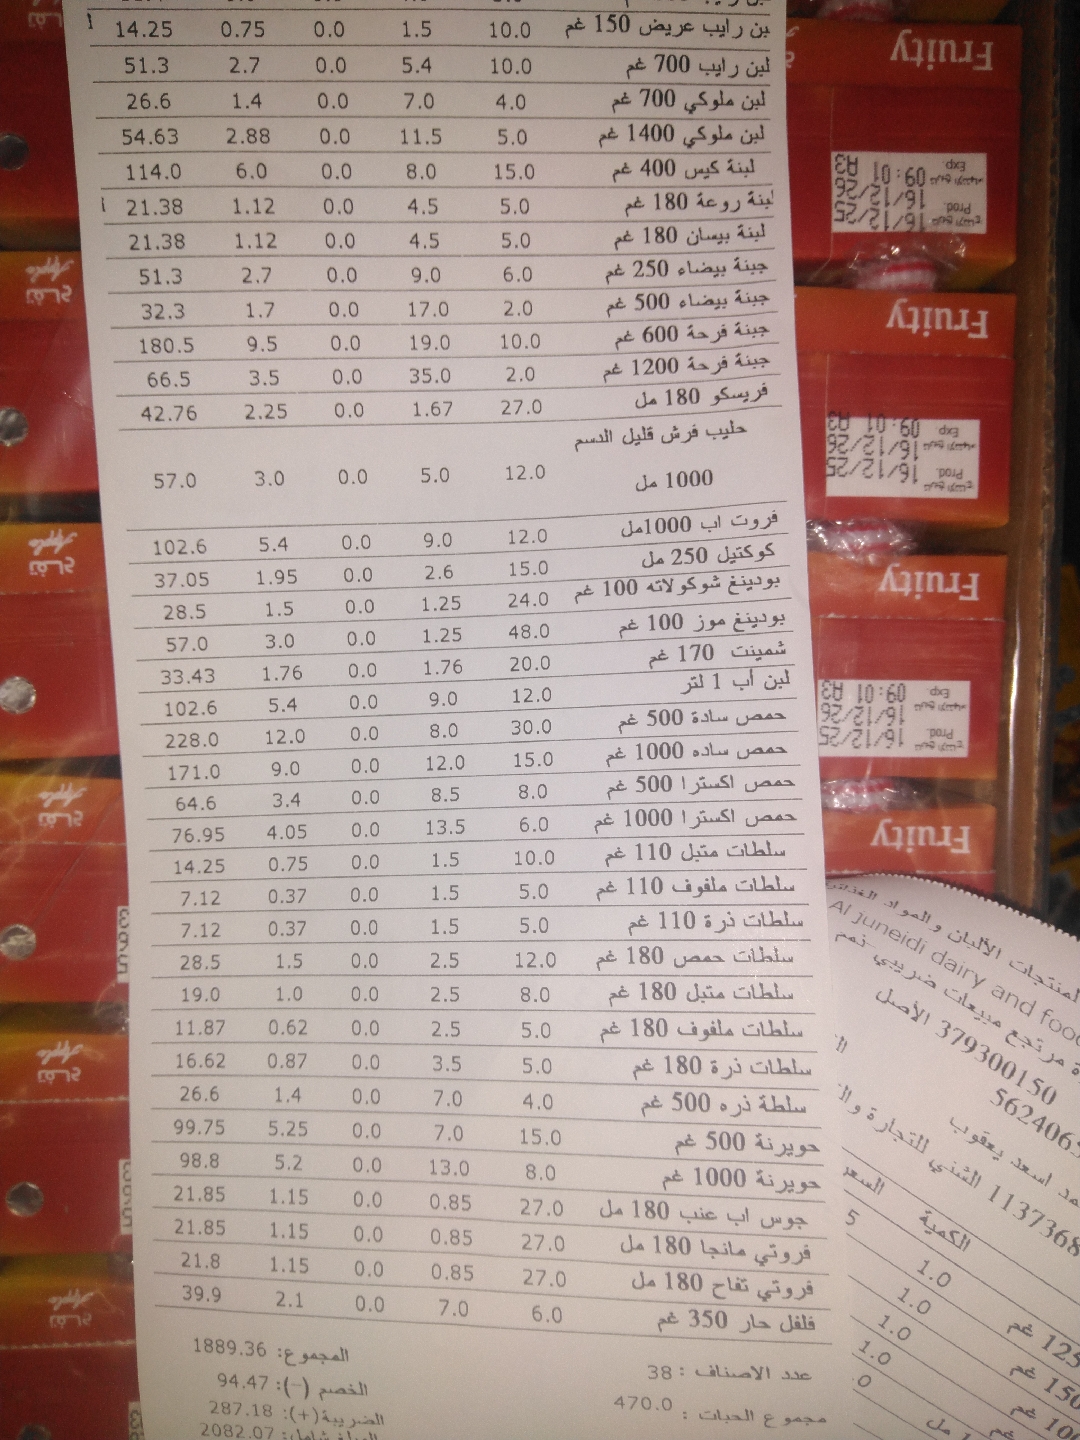 بن رايب عريض 150 غم 10.0 1.5 0.0 0.75 14.25
لبن رايب 700 غم 10.0 5.4 0.0 2.7 51.3
لبن ملوكي 700 غم 4.0 7.0 0.0 1.4 26.6
لبن ملوكي 1400 غم 5.0 11.5 0.0 2.88 54.63
لبنة كيس 400 غم 15.0 8.0 0.0 6.0 114.0
لبنة روعة 180 غم 5.0 4.5 0.0 1.12 21.38
لبنة بيسان 180 غم 5.0 4.5 0.0 1.12 21.38
جبنة بيضاء 250 غم 6.0 9.0 0.0 2.7 51.3
جبنة بيضاء 500 غم 2.0 17.0 0.0 1.7 32.3
جبنة فرحة 600 غم 10.0 19.0 0.0 9.5 180.5
جبنة فرحة 1200 غم 2.0 35.0 0.0 3.5 66.5
فريسكو 180 مل 27.0 1.67 0.0 2.25 42.76
حليب فرش قليل الدسم
1000 مل 12.0 5.0 0.0 3.0 57.0
فروت اب 1000مل 12.0 9.0 0.0 5.4 102.6
كوكتيل 250 مل 15.0 2.6 0.0 1.95 37.05
بودينغ شوكولاته 100 غم 24.0 1.25 0.0 1.5 28.5
بودينغ موز 100 غم 48.0 1.25 0.0 3.0 57.0
شمينت 170 غم 20.0 1.76 0.0 1.76 33.43
لبن أب 1 لتر 12.0 9.0 0.0 5.4 102.6
حمص سادة 500 غم 30.0 8.0 0.0 12.0 228.0
حمص ساده 1000 غم 15.0 12.0 0.0 9.0 171.0
حمص اكسترا 500 غم 8.0 8.5 0.0 3.4 64.6
حمص اكسترا 1000 غم 6.0 13.5 0.0 4.05 76.95
سلطات متبل 110 غم 10.0 1.5 0.0 0.75 14.25
سلطات ملفوف 110 غم 5.0 1.5 0.0 0.37 7.12
سلطات ذرة 110 غم 5.0 1.5 0.0 0.37 7.12
سلطات حمص 180 غم 12.0 2.5 0.0 1.5 28.5
سلطات متبل 180 غم 8.0 2.5 0.0 1.0 19.0
سلطات ملفوف 180 غم 5.0 2.5 0.0 0.62 11.87
سلطات ذرة 180 غم 5.0 3.5 0.0 0.87 16.62
سلطة ذره 500 غم 4.0 7.0 0.0 1.4 26.6
حويرنة 500 غم 15.0 7.0 0.0 5.25 99.75
حويرنة 1000 غم 8.0 13.0 0.0 5.2 98.8
جوس اب عنب 180 مل 27.0 0.85 0.0 1.15 21.85
فروتي مانجا 180 مل 27.0 0.85 0.0 1.15 21.85
فروتي تفاح 180 مل 27.0 0.85 0.0 1.15 21.8
فلفل حار 350 غم 6.0 7.0 0.0 2.1 39.9
عدد الاصناف : 38 المجموع: 1889.36
مجموع الحبات : 470.0 الخصم (-): 94.47
الضريبة(+): 287.18
2082.07
لمنتجات الألبان والمواد
Al Juneidi dairy and food
مرتجع مبيعات ضريبي
379300150 الأصل
562406
اسعد يعقوب
1137368 الشني للتجارة
الكمية السعر
1.0 5
125 غم 1.0
150 غم 1.0
غم 1.0
مل
Fruity
تفاح
Apple
Prod. 16/12/25
Exp 16/12/26
09:01 A3
Fruity
تفاح
Apple
Prod. 16/12/25
Exp 16/12/26
09:01 A3
Fruity
تفاح
Apple
Prod. 16/12/25
Exp 16/12/26
09:01 A3
Fruity
تفاح
Apple
تفاح
Apple
تفاح
Apple